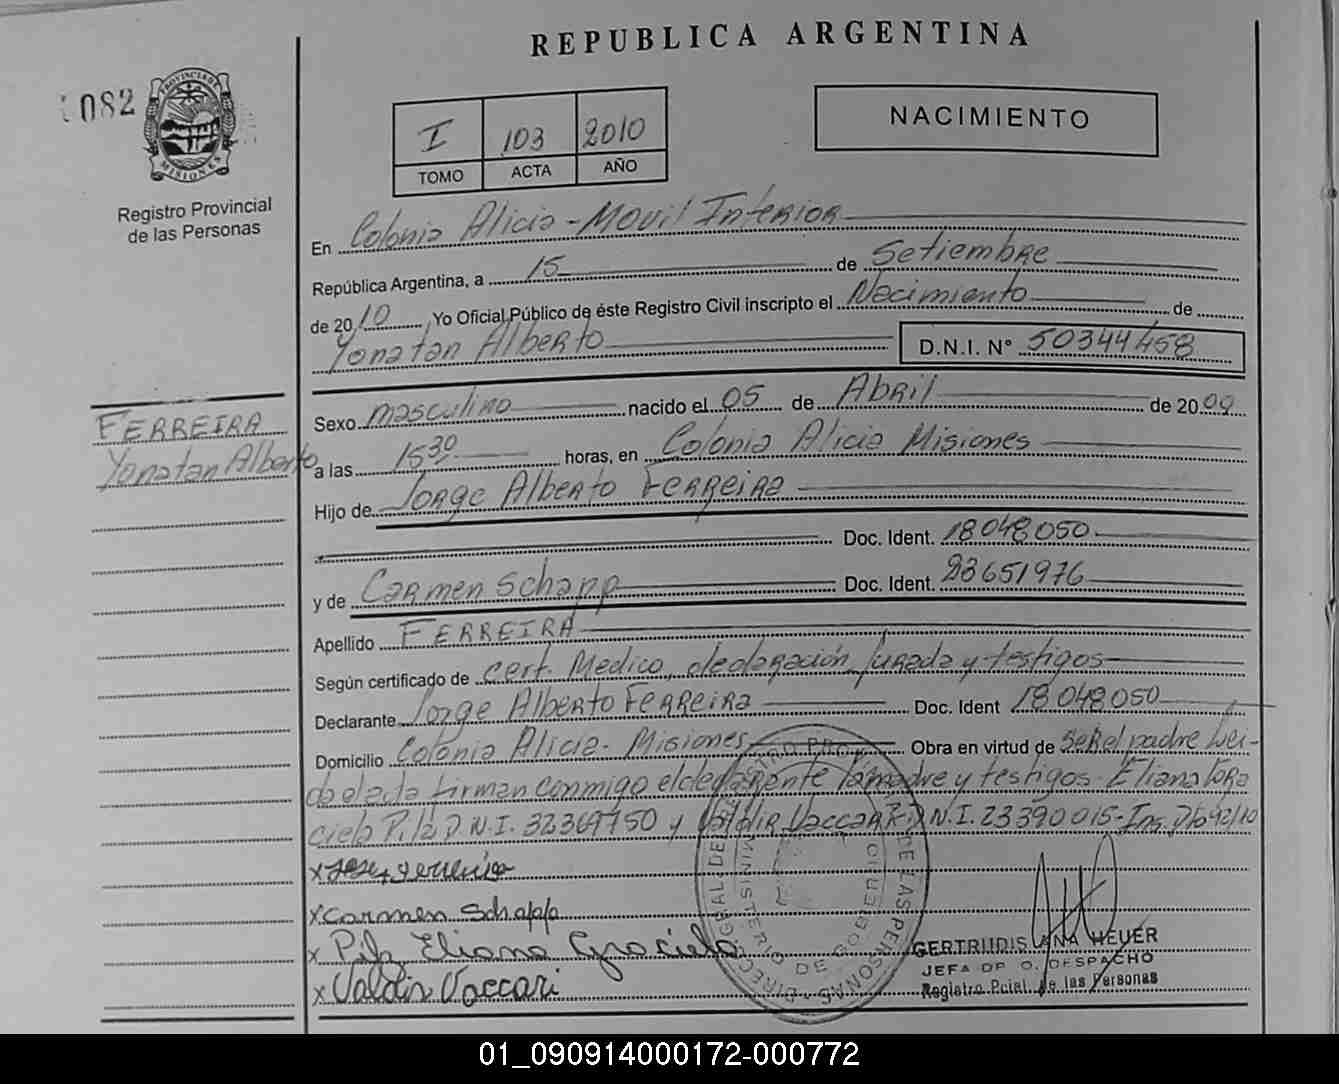 REPUBLICA ARGENTINA
1082
PROVINCIA DE MISIONES
Registro Provincial
de las Personas
I 103 2010
TOMO ACTA AÑO
NACIMIENTO
En Colonia Alicia - Movil Interior
República Argentina, a 15 de Setiembre
de 2010, Yo Oficial Público de éste Registro Civil inscripto el Nacimiento de
Yonatan Alberto D.N.I. N° 50344458
FERREIRA
Yonatan Alberto
Sexo masculino nacido el 05 de Abril de 2009
a las 15 30 horas, en Colonia Alicia Misiones
Hijo de Jorge Alberto Ferreira
Doc. Ident. 18.048.050
y de Carmen Schapp Doc. Ident. 23651976
Apellido FERREIRA
Según certificado de cert. Medico, declaración Jurada y testigos
Declarante Jorge Alberto Ferreira Doc. Ident 18.048.050
Domicilio Colonia Alicia - Misiones Obra en virtud de ser el padre Lei-
da el acta firman conmigo el declarente la madre y testigos - Eliana Gra
ciela Pilz D.N.I. 32369750 y Valdir Vaccari D.N.I. 23390015 - Ins. Dto 92/10
x
x Carmen Schapp
x Pilz Eliana Graciela
x Valdir Vaccari
DIRECC. GRAL. DEL REGISTRO PROV. DE LAS PERSONAS
MINISTERIO DE GOBIERNO
GERTRUDIS ANA HEUER
JEFA DP O. DESPACHO
Registro Pcial. de las Personas
01_090914000172-000772